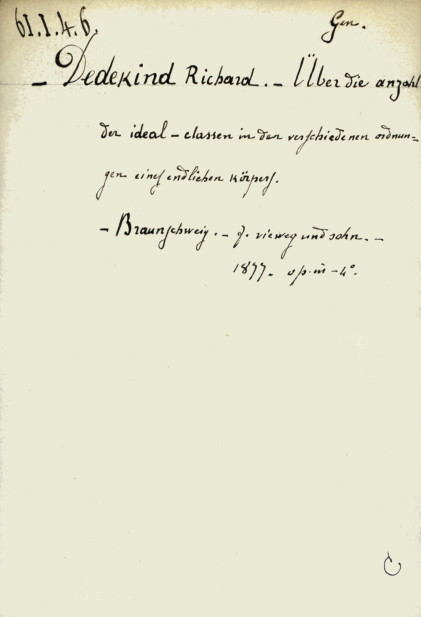 61.1.4.6.
Gen.
– Dedekind Richard. – Über die anzahl
der ideal – classen in den verschiedenen ordnun=
gen eines endlichen körpers.
– Braunschweig. – f. vieweg und sohn. –
1877. in – 4°.